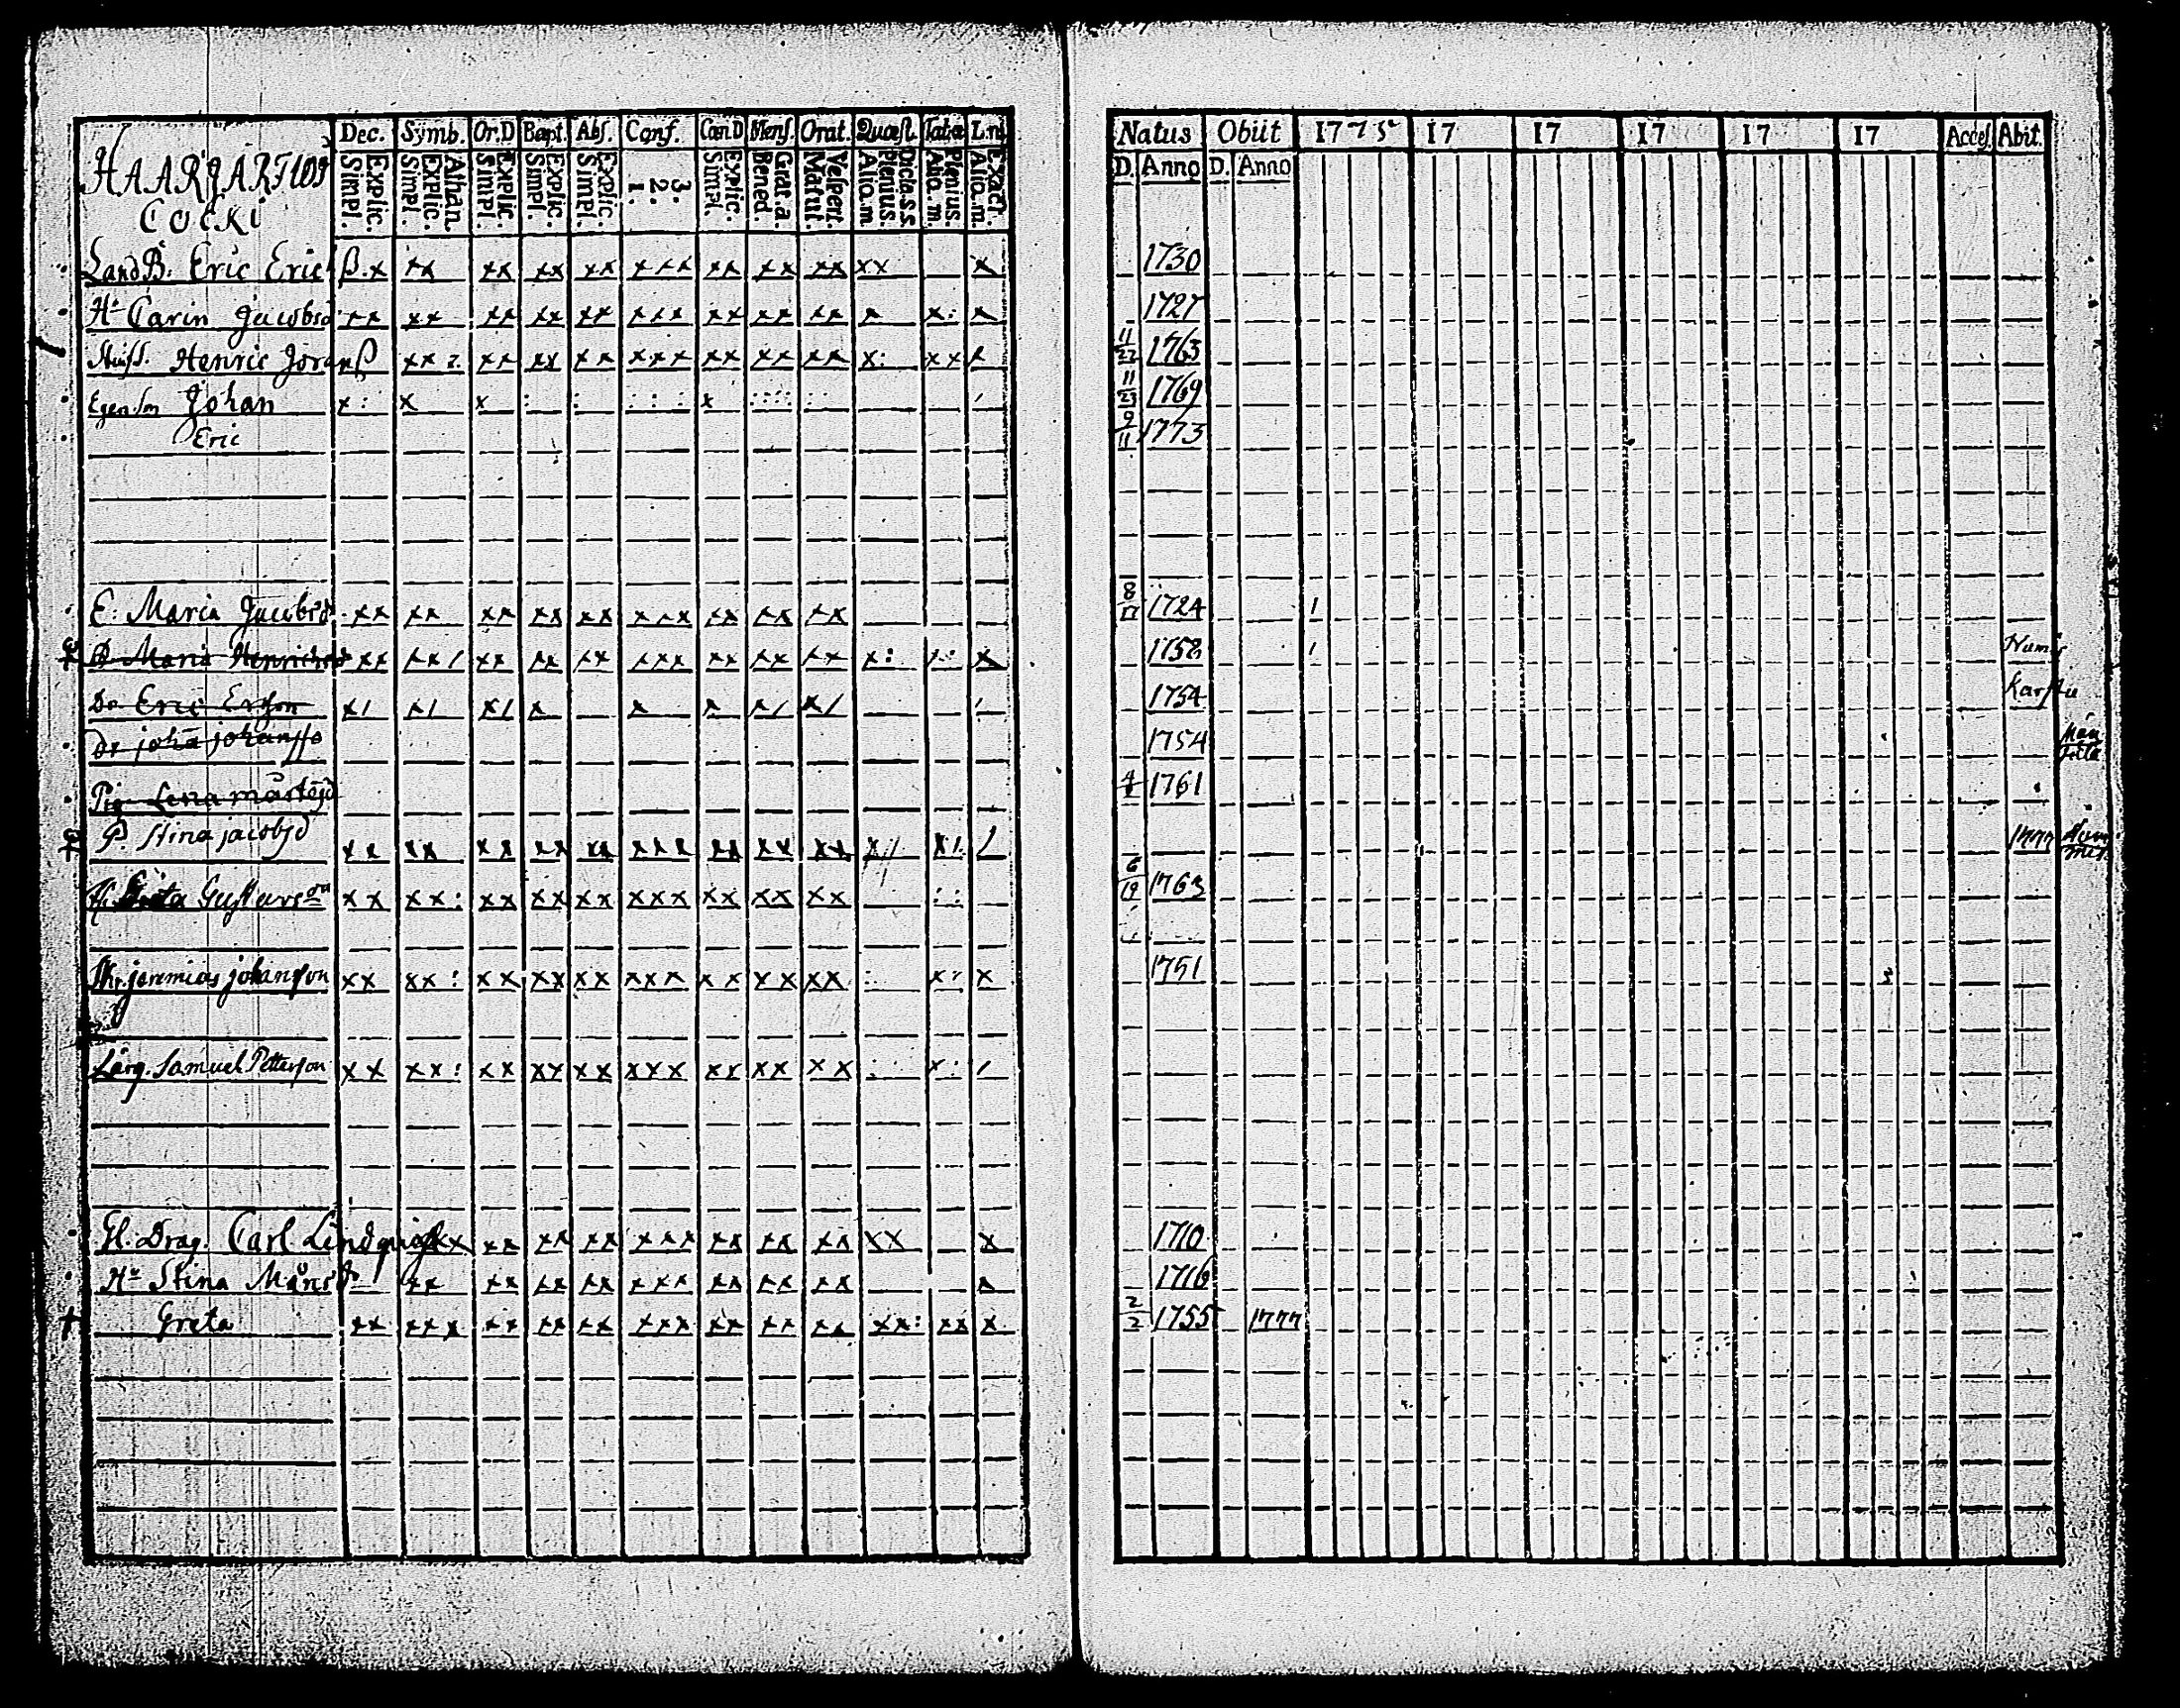 HAARJÄRFIOS
COCKI
Dec. Symb. Or.D Bapt. Abs. Conf. Can D Mens. Orat. Quæst. Tabæ L.ni
Explic. Simpl. Athan. Explic. Simpl. Explic. Simpl. Explic. Simpl. Explic. Simpl. 3. 2. 1. Explic. Simpl. Grat.a. Bened. Vespert. Matut. Dicta.s.s. Plenius. Aliq.m Plenius. Aliq.m. Exact. Aliq.m.
Natus Obiit 1775 17 17 17 17 17 Acces. Abit.
D. Anno D. Anno
Land B. Eric Eric β.x xx xx xx xx xxx xx xx xx xx x 1730
Hu Carin Jacobsd xx xx xx xx xx xxx xx xx xx x x: x 1727
Henric Joran β xx 2. xx xx xx xxx xx xx xx x: xx x 11/22 1763
Egen.son Johan x: x x : : : : : x :::: : : / 11/23 1769
Eric 9/11 1773
E. Maria Jacobsd xx xx xx xx xx xxx xx xx xx 8/17 1724 1
P Maria Henricsd xx xx/ xx xx xx xxx xx xx xx x: x: x 1758 1 Numis
Dr Eric Ersson x/ x/ x/ x x x x/ x/ / 1754 Karstu
Dr johā johansso 1754 Män
Pig Lena mårtēsd 4/8 1761
P. Stina jacobsd xx xx xx xx xx xxx xx xx xx x/ x/ / 1777 Num
mis
Greta Gustavs xx xx: xx xx xx xxx xx xx xx :: 6/19 1763
jeremias johanson xx xx: xx xx xx xxx xx xx xx : x: x 1751
Lärg. Samuel Petterson xx xx: xx xx xx xxx xx xx xx : x: /
Gl. Drag. Carl Lindquist xx xx xx xx xxx xx xx xx xx x 1710
Hu Stina Månsd xx xx xx xx xxx xx xx xx x 1716
† Greta xx xxx xx xx xx xxx xx xx xx xx: xx x 2/2 1755 1777